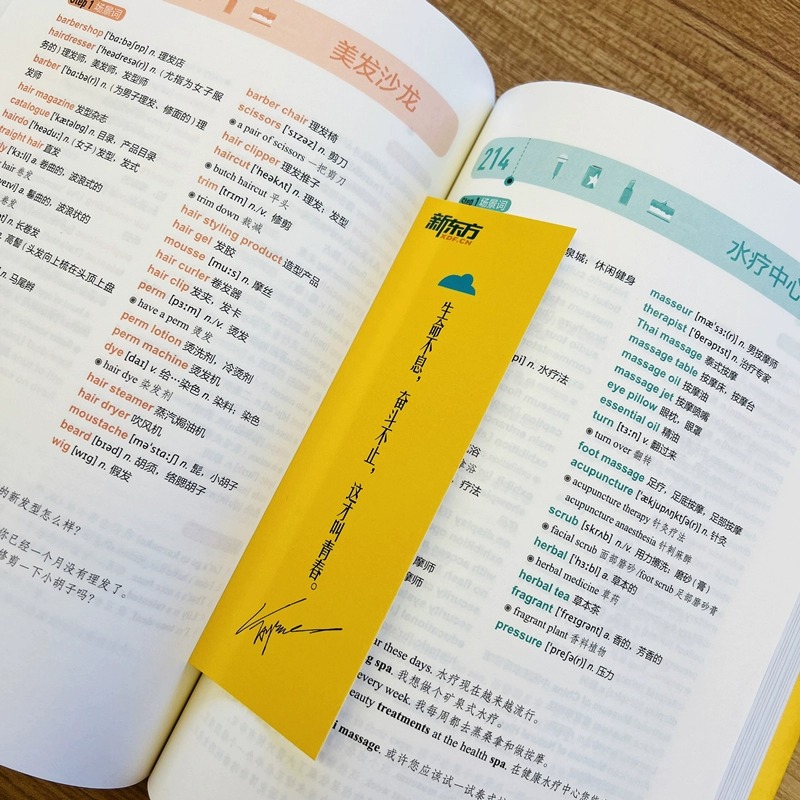 Step 1 场景词
美发沙龙
barbershop ['bɑːbəʃɒp] n. 理发店
hairdresser ['heədresə(r)] n. (尤指为女子服
务的) 理发师, 美发师, 发型师
barber ['bɑːbə(r)] n. (为男子理发、修面的) 理
发师
hair magazine 发型杂志
catalogue ['kætəlɒg] n. 目录, 产品目录
hairdo ['heəduː] n. (女子) 发型, 发式
straight hair 直发
['kɜːli] a. 卷曲的, 波浪式的
hair 卷发
a. 鬈曲的, 波浪状的
卷发
n. 长卷发
n. 高髻 (头发向上梳在头顶上盘
n. 马尾辫
barber chair 理发椅
scissors ['sɪzəz] n. 剪刀
a pair of scissors 一把剪刀
hair clipper 理发推子
haircut ['heəkʌt] n. 理发; 发型
butch haircut 平头
trim [trɪm] n./v. 修剪
trim down 裁减
hair styling product 造型产品
hair gel 发胶
mousse [muːs] n. 摩丝
hair curler 卷发器
hair clip 发夹, 发卡
perm [pɜːm] n./v. 烫发
have a perm 烫发
perm lotion 烫洗剂, 冷烫剂
perm machine 烫发机
dye [daɪ] v. 给…染色 n. 染料, 染色
hair dye 染发剂
hair steamer 蒸汽焗油机
hair dryer 吹风机
moustache [mə'stɑːʃ] n. 髭, 小胡子
beard [bɪəd] n. 胡须, 络腮胡子
wig [wɪg] n. 假发
的新发型怎么样?
你已经一个月没有理发了。
修剪一下小胡子吗?
新东方
XDF.CN
生命不息，奋斗不止，这才叫青春。
214
水疗中心
Step 1 场景词
泉城; 休闲健身
n. 水疗法
浴
疗法
摩师
摩师
masseur [mæ'sɜː(r)] n. 男按摩师
therapist ['θerəpɪst] n. 治疗专家
Thai massage 泰式按摩
massage table 按摩床, 按摩台
massage oil 按摩油
massage jet 按摩喷嘴
eye pillow 眼枕, 眼罩
essential oil 精油
turn [tɜːn] v. 翻过来
turn over 翻转
foot massage 足疗, 足底按摩, 足部按摩
acupuncture ['ækjupʌŋktʃə(r)] n. 针灸
acupuncture therapy 针灸疗法
acupuncture anaesthesia 针刺麻醉
scrub [skrʌb] n./v. 用力擦洗; 磨砂 (膏)
facial scrub 面部磨砂 /foot scrub 足部磨砂膏
herbal ['hɜːbl] a. 草本的
herbal medicine 草药
herbal tea 草本茶
fragrant ['freɪgrənt] a. 香的, 芳香的
fragrant plant 香料植物
pressure ['preʃə(r)] n. 压力
these days. 水疗现在越来越流行。
spa. 我想做个矿泉式水疗。
every week. 我每周都去蒸桑拿和做按摩。
treatments at the health spa. 在健康水疗中心
massage, 或许您应该试一试泰式